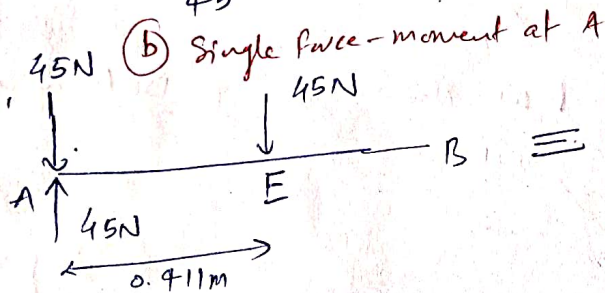 45N (b) Single force-moment at A
45N
A E B ≡
45N
0.411m